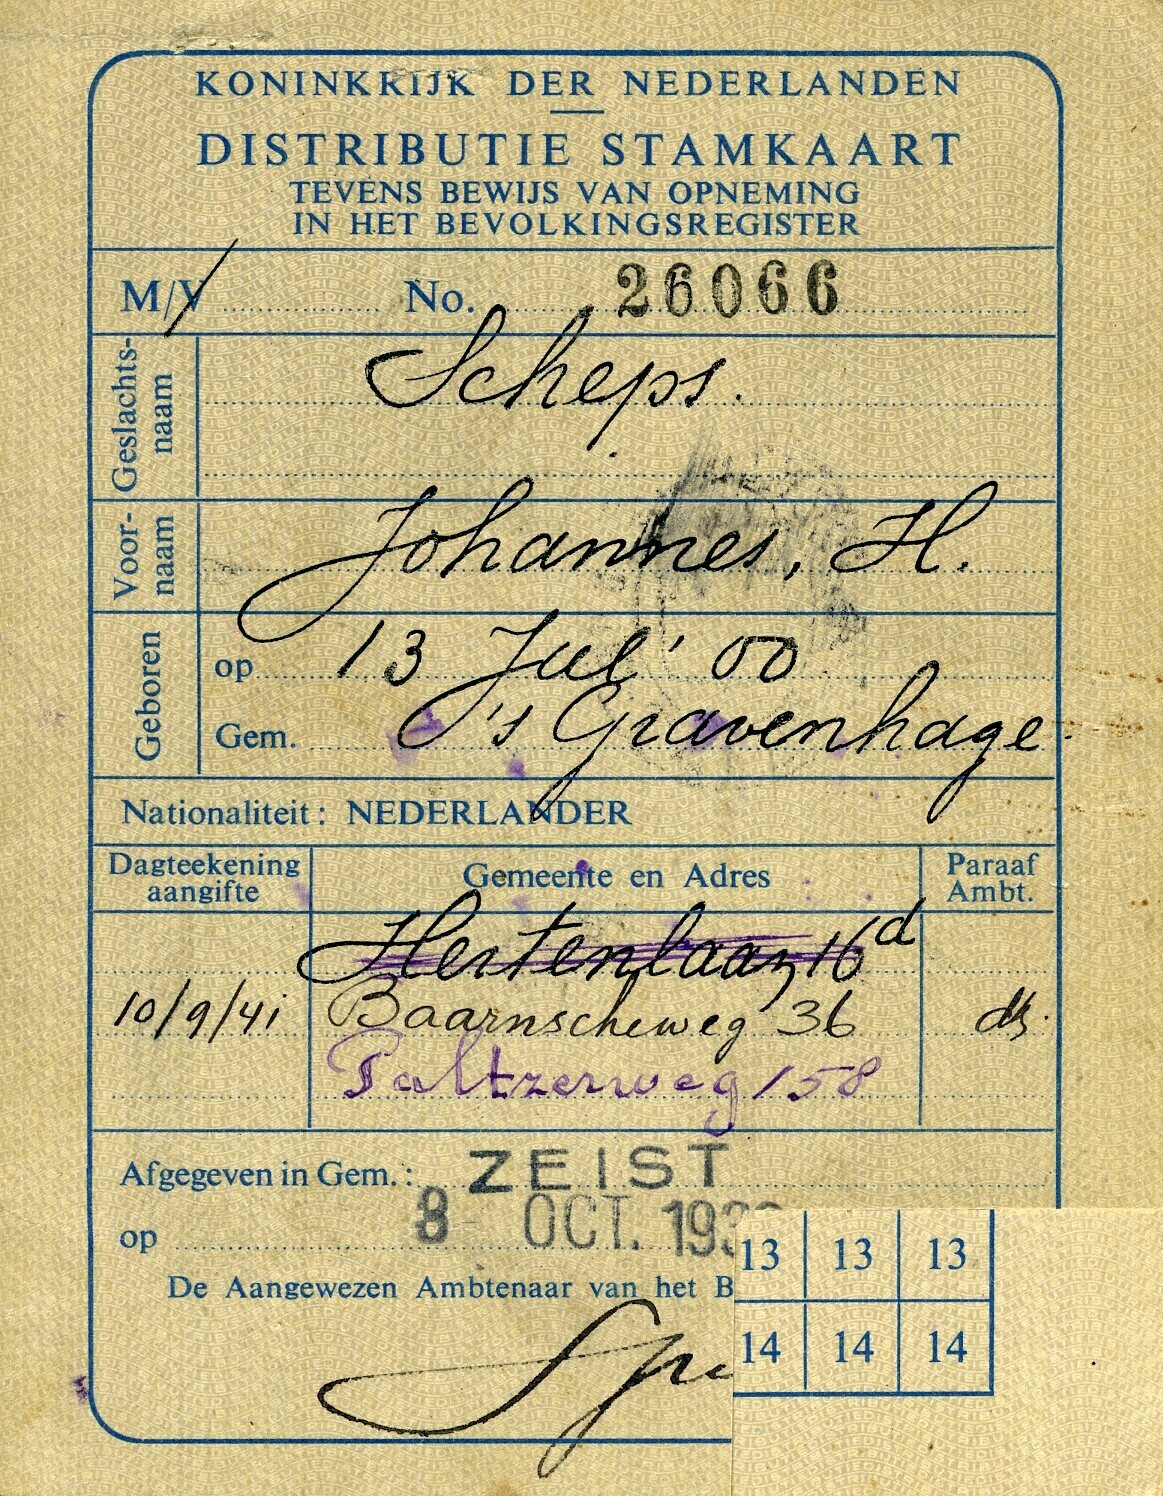 KONINKRIJK DER NEDERLANDEN
DISTRIBUTIE STAMKAART
TEVENS BEWIJS VAN OPNEMING
IN HET BEVOLKINGSREGISTER
M/V No. 26066
Geslachts-
naam
Scheps.
Voor-
naam
Johannes, H.
Geboren
op 13 Jul' 00
Gem. 's Gravenhage
Nationaliteit: NEDERLANDER
Dagteekening
aangifte
Gemeente en Adres
Paraaf
Ambt.
Hertenlaan 16d
10/9/41 Baarnscheweg 36
Paltzerweg 158
Afgegeven in Gem.: ZEIST
op 8 OCT.
De Aangewezen Ambtenaar van het B
13 13 13
14 14 14